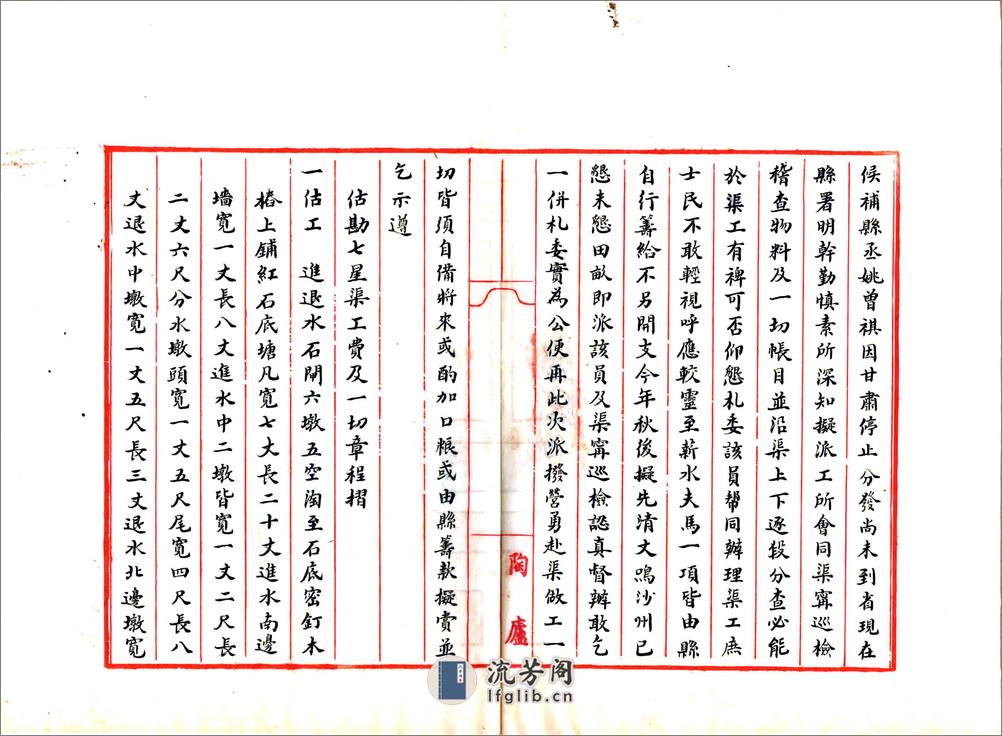 候補縣丞姚曾祺因甘肅停止分發尚未到省現在
縣署明幹勤慎素所深知擬派工所會同渠寧巡檢
稽查物料及一切帳目並沿渠上下逐段分查必能
於渠工有裨可否仰懇札委該員幫同辦理渠工庶
士民不敢輕視呼應較靈至薪水夫馬一項皆由縣
自行籌給不另開支今年秋後擬先清丈鳴沙州已
懇未懇田畝即派該員及渠寧巡檢認真督辦敢乞
一併札委實為公便再此次派撥營勇赴渠做工一
切皆須自備將來或酌加口糧或由縣籌款擬賞並
乞示遵
估勘七星渠工費及一切章程摺
一估工 進退水石閘六墩五空淘至石底密釘木
樁上鋪紅石底塘凡寬七丈長二十丈進水南邊
墻寬一丈長八丈進水中二墩皆寬一丈二尺長
二丈六尺分水墩頭寬一丈五尺尾寬四尺長八
丈退水中墩寬一丈五尺長三丈退水北邊墩寬
陶廬
流芳阁
lfglib.cn